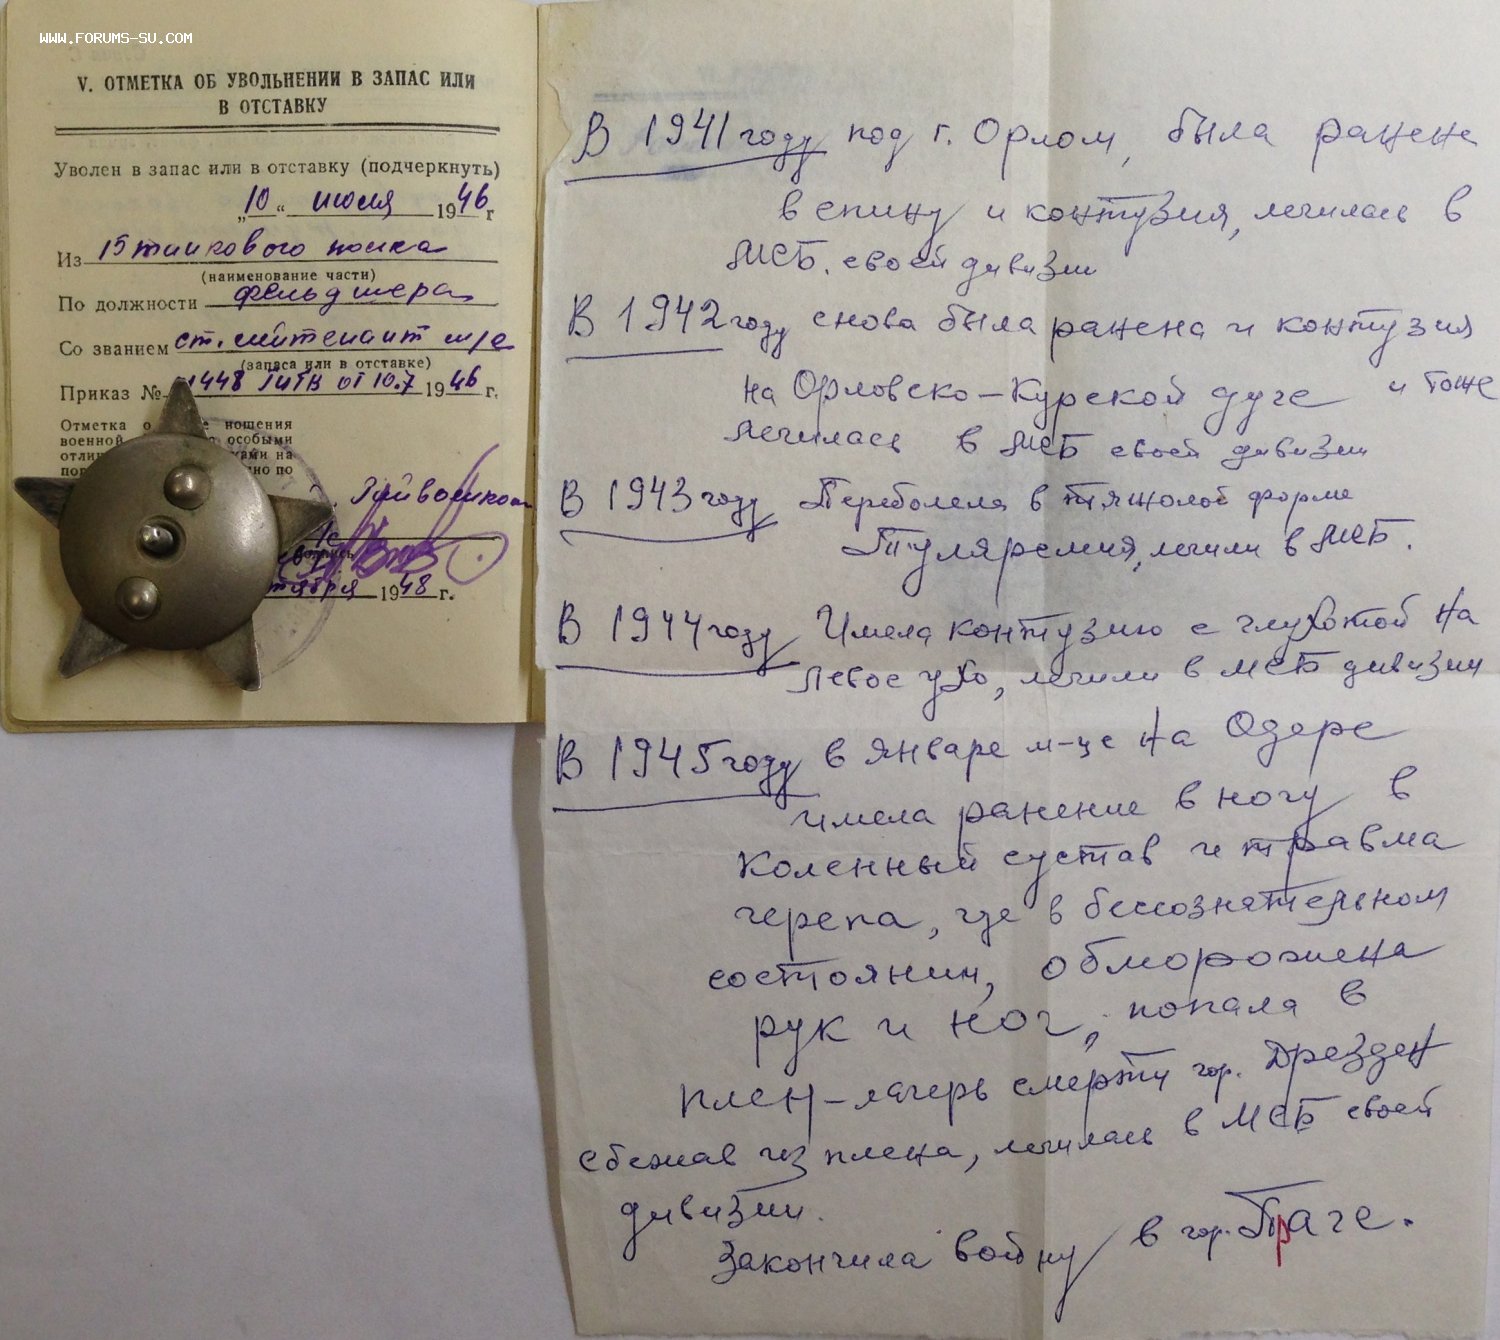 WWW.FORUMS-SU.COM
V. ОТМЕТКА ОБ УВОЛЬНЕНИИ В ЗАПАС ИЛИ
В ОТСТАВКУ
Уволен в запас или в отставку (подчеркнуть)
„10“ июля 1946 г
Из 15 танкового полка
(наименование части)
По должности фельдшера
Со званием ст. лейтенант м/с
(запаса или в отставке)
Приказ № 1448 от 10.7 1946 г.
Отметка о ношения
военной особыми
отли ками на
по но по
подпись
тября 1948 г.
В 1941 году под г. Орлом, была ранена
в спину и контузия, лечилась в
МСБ. своей дивизии
В 1942 году снова была ранена и контузия
на Орловско-Курской дуге и тоже
лечилась в МСБ своей дивизии
В 1943 году Переболела в тяжолой форме
Туляремия, лечили в МСБ.
В 1944 году Имела контузию с глухотой на
левое ухо, лечили в МСБ дивизии
В 1945 году в январе м-це на Одере
имела ранение в ногу в
коленный сустав и травма
черепа, где в бессознательном
состоянии, обморожена
рук и ног, попала в
плен-лагерь смерти гор. Дрезден
сбежав из плена, лечилась в МСБ своей
дивизии.
Закончила войну в гор. Праге.